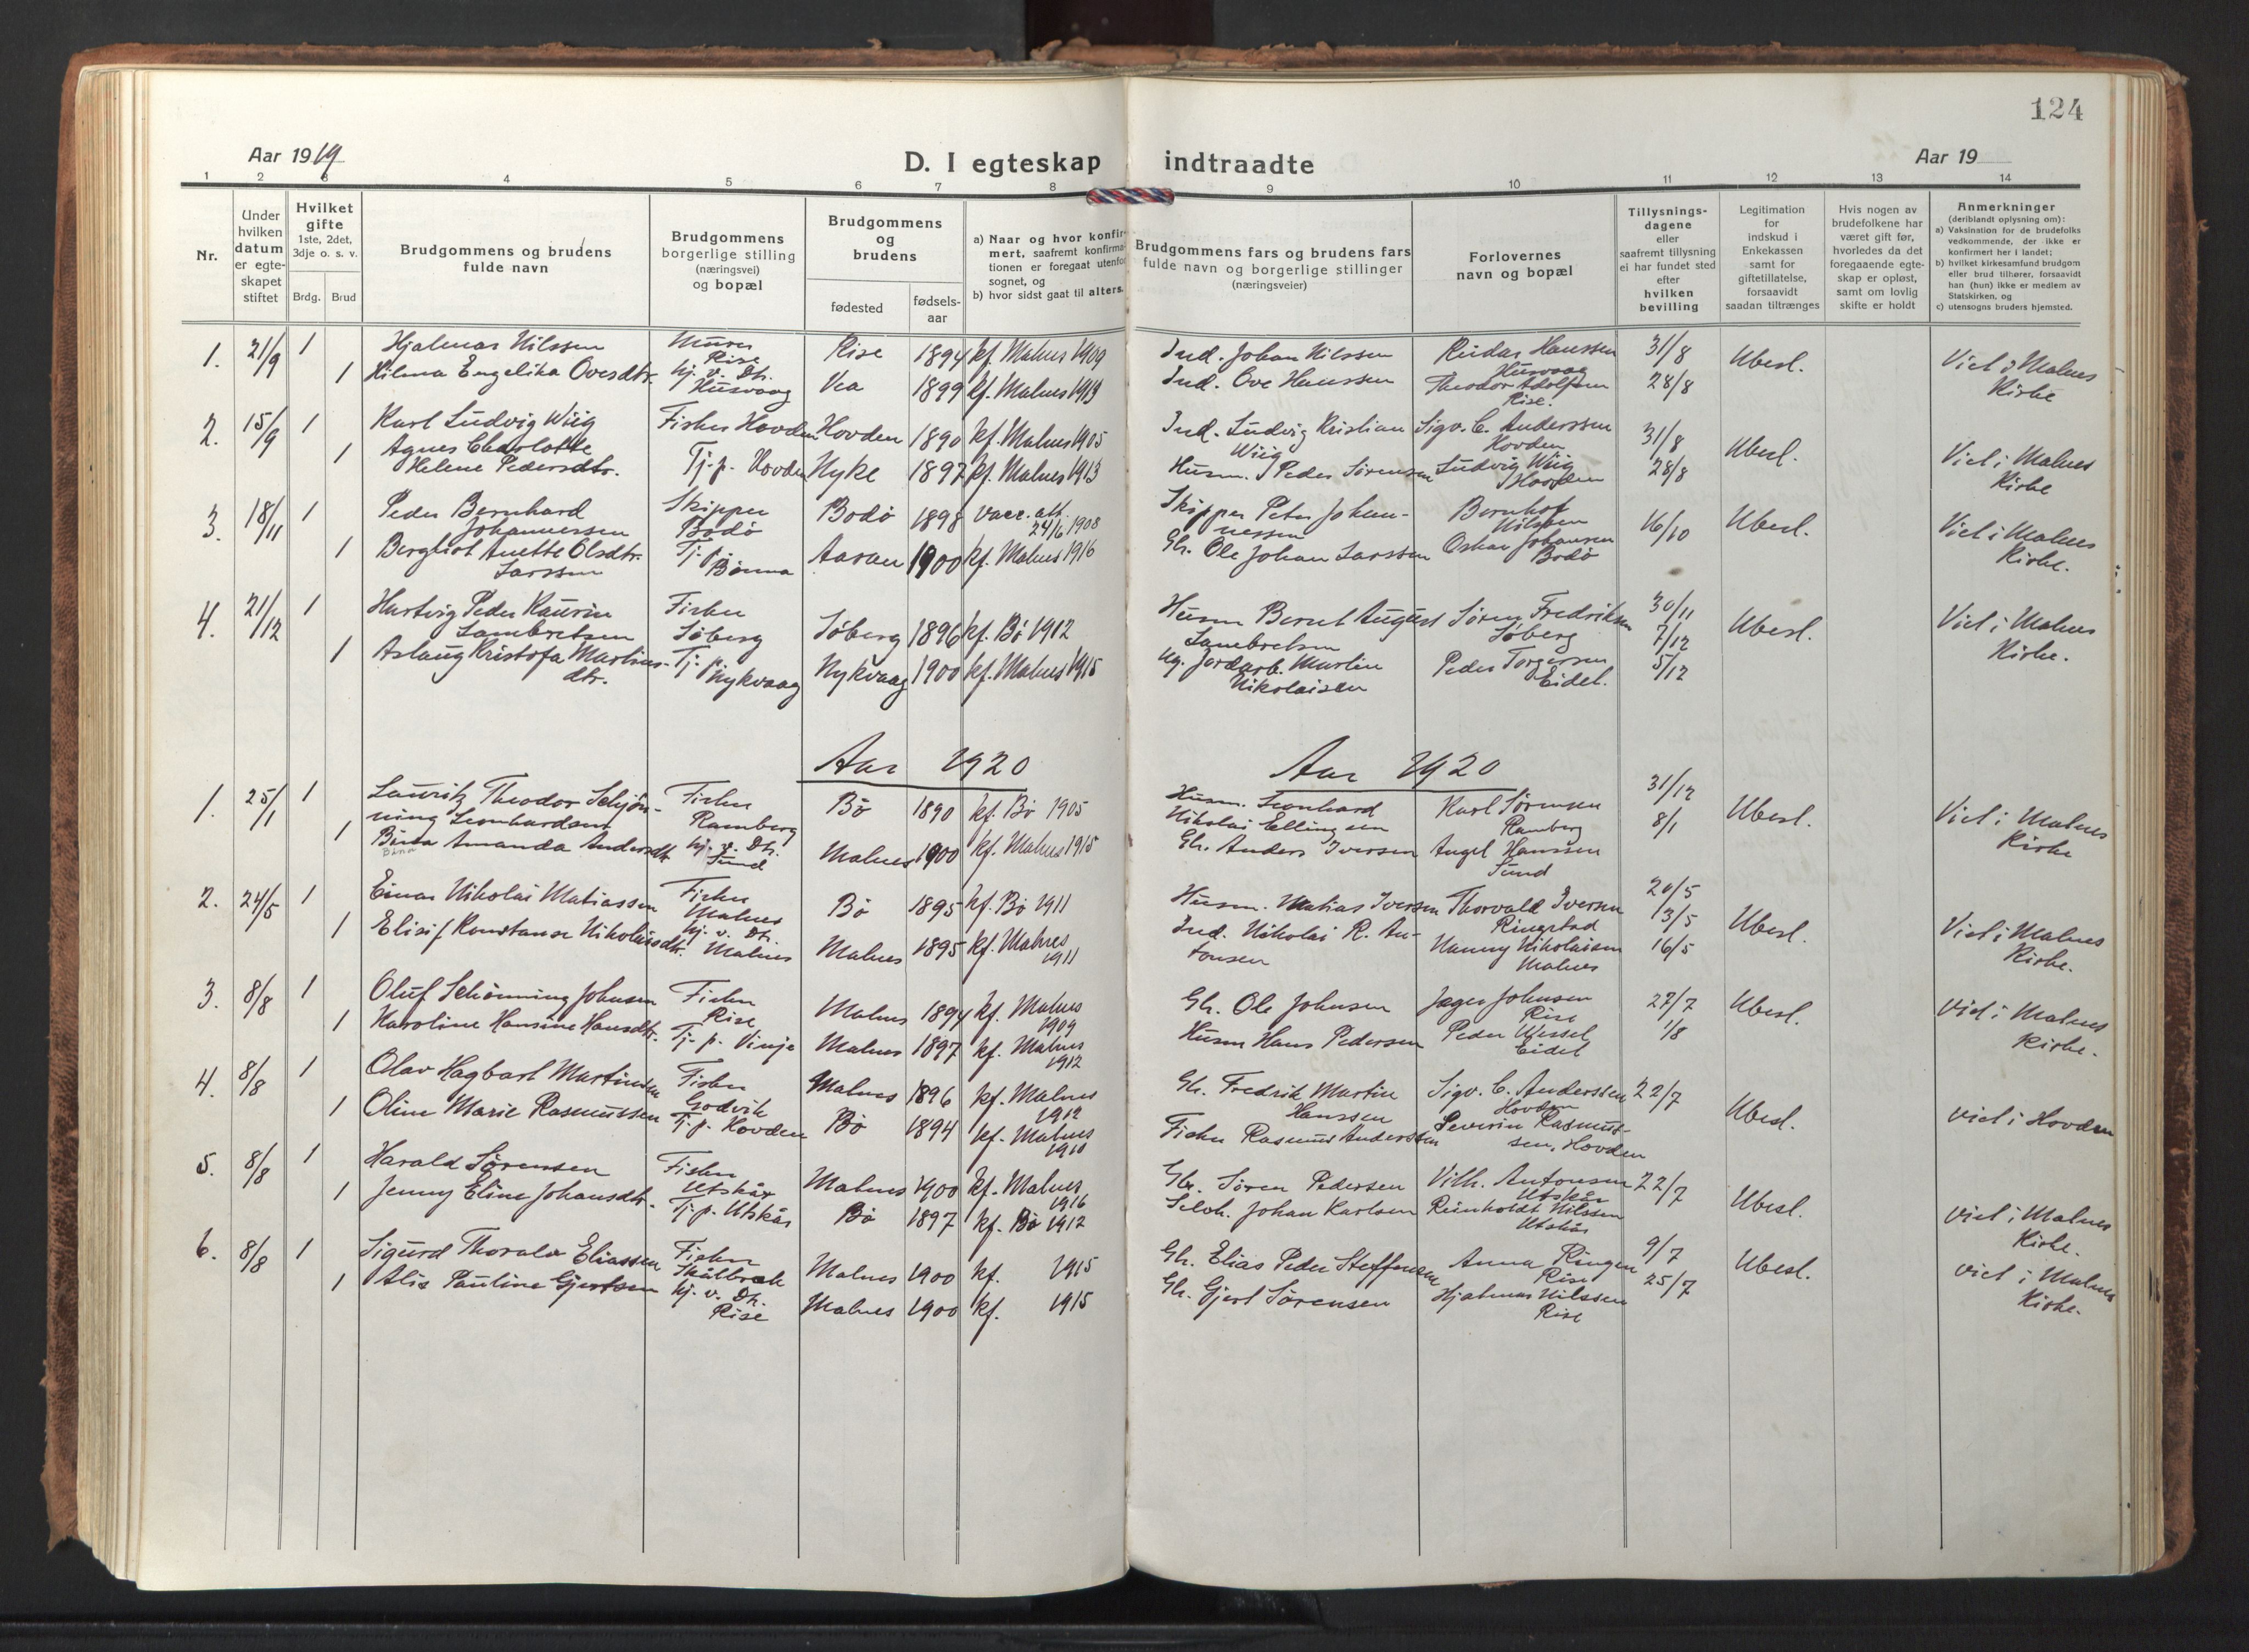 124
Aar 1919
D. I egteskap indtraadte
Aar 19
1 2 3 4 5 6 7 8 9 10 11 12 13 14
Nr.
Under hvilken datum er egteskapet stiftet
Hvilket gifte
1ste, 2det, 3dje o. s. v.
Brdg. Brud
Brudgommens og brudens fulde navn
Brudgommens borgerlige stilling (næringsvei) og bopæl
Brudgommens og brudens
fødested
fødselsaar
a) Naar og hvor konfirmert, saafremt konfirmationen er foregaat utenfor sognet, og
b) hvor sidst gaat til alters.
Brudgommens fars og brudens fars fulde navn og borgerlige stillinger (næringsveier)
Forlovernes navn og bopæl
Tillysningsdagene eller saafremt tillysning ei har fundet sted efter hvilken bevilling
Legitimation for indskud i Enkekassen samt for giftetillatelse, forsaavidt saadan tiltrænges
Hvis nogen av brudefolkene har været gift før, hvorledes da det foregaaende egteskap er opløst, samt om lovlig skifte er holdt
Anmerkninger
(deriblandt oplysning om):
a) Vaksination for de brudefolks vedkommende, der ikke er konfirmert her i landet;
b) hvilket kirkesamfund brudgom eller brud tilhører, forsaavidt han (hun) ikke er medlem av Statskirken, og
c) utensogns bruders hjemsted.
1. 21/9 1 Hjalmar Nilssen Murer Rise Rise 1894 kf. Malnes 1909 Ind. Johan Nilssen Reidar Hanssen Husvaag 31/8 Ubesl. Viet i Malnes Kirke
1 Hilma Engelika Ovesdtr. hj. v. Dtr. Husvaag Vea 1899 kf. Malnes 1914 Ind. Ove Hanssen Theodor Adolfsen Rise. 28/8
2. 15/9 1 Karl Ludvig Wiig Fisker Hovden Hovden 1890 kf. Malnes 1905 Ind. Ludvig Kristian Wiig Sigv. C. Anderssen Hovden 31/8 Ubesl. Viet i Malnes Kirke
1 Agnes Charlotte Helene Pedersdtr. Tj. p. Hovden Nyke 1897 kf. Malnes 1913 Husm. Peder Sørensen Ludvig Wiig Hovden 28/8
3. 18/11 1 Peder Bernhard Johannessen Skipper Bodø Bodø 1898 vacc. att. 24/6 1908 Skipper Peter Johannessen Bernhof Nilssen 16/10 Ubesl. Viet i Malnes Kirke.
1 Bergliot Anette Olsdtr. Larssen Tj. p. Bønna Aaran 1900 kf. Malnes 1916 Gbr. Ole Johan Larssen Oskar Johansen Bodø
4. 21/12 1 Hartvig Peder Kaurin Lambretsen Fisker Søberg Søberg 1896 kf. Bø 1912 Husm Bernt August Lambretsen Søren Fredriksen Søberg 30/11 7/12 Ubesl. Viet i Malnes Kirke.
1 Aslaug Kristofa Martinsdtr. Tj. p. Nykvaag Nykvaag 1900 kf. Malnes 1915 Ug. Jordarb. Martin Nikolaisen Peder Torgersen Eidet. 5/12
Aar 1920 Aar 1920
1. 25/1 1 Lauritz Theodor Schjønning Leonhardsen Fisker Ramberg Bø 1890 kf. Bø 1905 Husm. Leonhard Nikolai Ellingsen Karl Sørensen Ramberg 31/12 Ubesl. Viet i Malnes Kirke
1 Bina Amanda Andersdtr. hj. v. Dtr. Sund Malnes 1900 kf. Malnes 1915 Gbr. Anders Iversen Angel Hanssen Sund 8/1
2. 24/5 1 Einar Nikolai Matiassen Fisker Malnes Bø 1895 kf. Bø 1911 Husm. Matias Iversen Thorvald Iversen Ringstad 20/5 13/5 Ubesl. Viet i Malnes Kirke.
1 Elisif Konstanse Nikolaisdtr. hj. v. Dtr. Malnes Malnes 1895 kf. Malnes 1911 Ind. Nikolai R. Antonsen Nanny Nikolaisen Malnes 16/5
3. 8/8 1 Oluf Schönning Johnsen Fisker Rise Malnes 1894 kf. Malnes 1909 Gbr. Ole Johnsen Jager Johnsen Rise 27/7 Ubesl. Viet i Malnes Kirke.
1 Karoline Hansine Hansdtr. Tj. p. Vinje Malnes 1897 kf. Malnes 1912 Husm Hans Pedersen Peder Wessel Eidet 1/8
4. 8/8 1 Olav Hagbart Martinsen Fisker Godvik Malnes 1896 kf. Malnes 1912 Gbr. Fredrik Martin Hanssen Sigv. C. Anderssen Hovden 22/7 Ubesl. viet i Hovden
1 Oline Marie Rasmussen Tj. p. Hovden Bø 1894 kf. Malnes 1910 Fisker Rasmus Anderssen Severin Rasmussen, Hovden
5. 8/8 1 Harald Sørensen Fisker Utskår Malnes 1900 kf. Malnes 1916 Gbr. Søren Pedersen Vilh. Antonsen Utskår 22/7 Ubesl. viet i Malnes Kirke.
1 Jenny Eline Johansdtr. Tj. p. Utskår Bø 1897 kf. Bø 1912 Selvh. Johan Karlsen Reinholdt Nilssen Utskår
6. 8/8 1 Sigurd Thoralv Eliassen Fisker Skålbrek Malnes 1900 kf. 1915 Gbr. Elias Peder Steffensen Anna Ringen Rise 9/7 Ubesl. viet i Malnes Kirke.
1 Alis Pauline Gjertsen hj. v. Dtr. Rise Malnes 1900 kf. 1915 Gbr. Gjert Sørensen Hjalmar Nilssen Rise 25/7